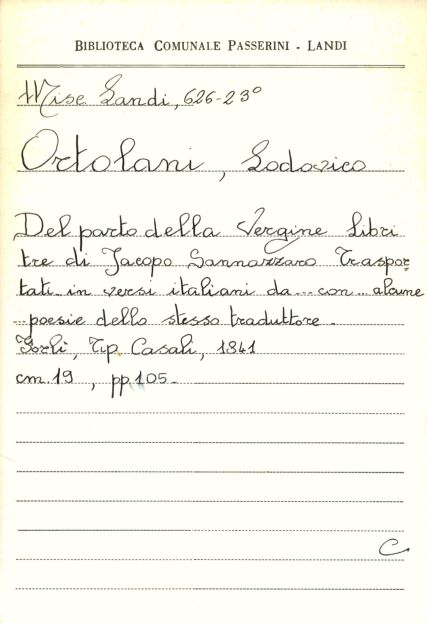 BIBLIOTECA COMUNALE PASSERINI - LANDI
Misc Landi, 626-23°
Ortolani, Lodovico
Del parto della Vergine Libri
tre di Jacopo Sannazzaro Traspor=
tati in versi italiani da...con...alcune
...poesie dello stesso traduttore.
Forlì, Tip. Casali, 1841
cm.19, pp.105.
C